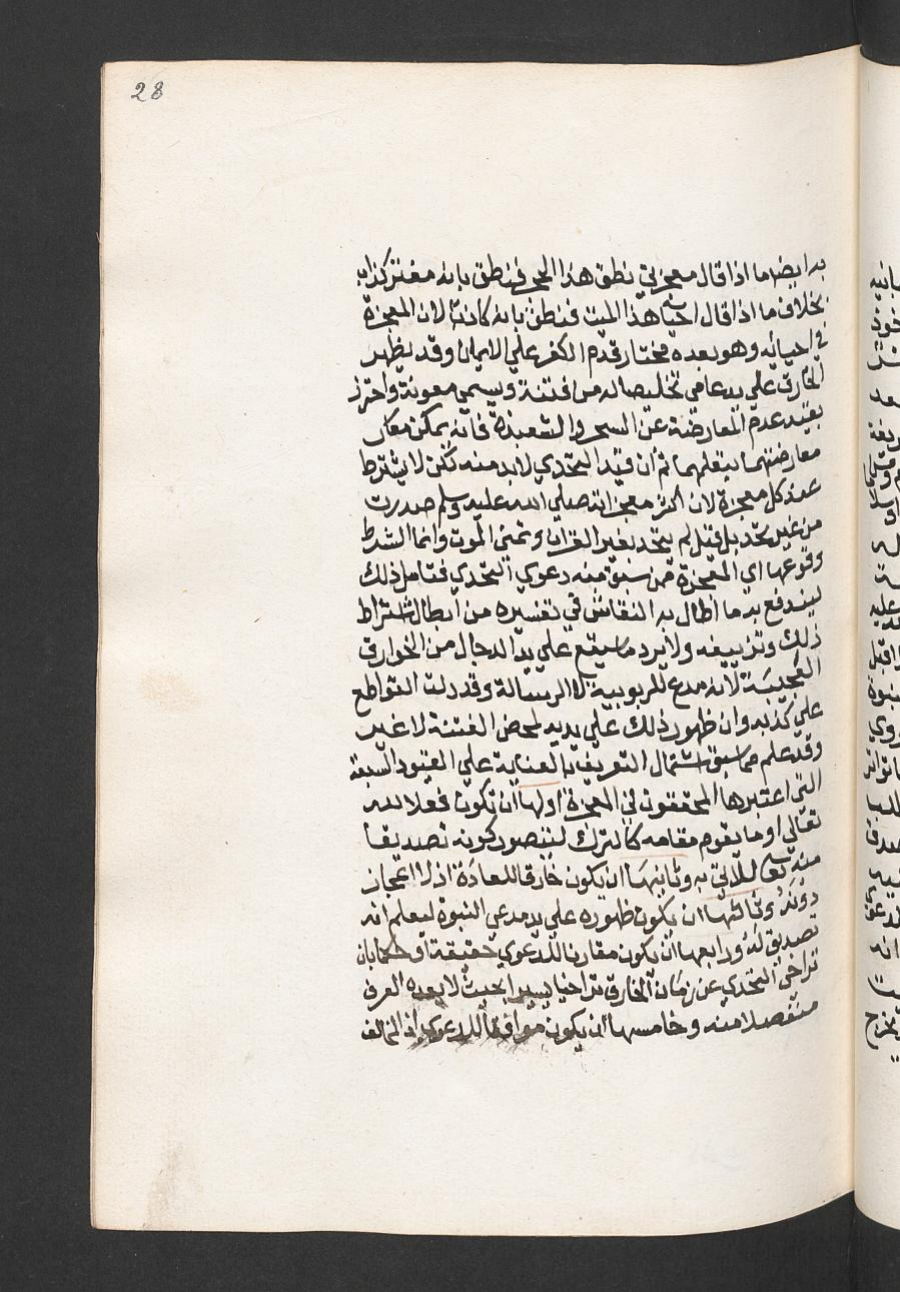 28
به ايضا ما اذا قال معجزتي نطق هذا الحجر فنطق بانه مفتر كذاب
بخلاف ما اذا قال احياء هذا الميت فنطق بانه كاذب لان المعجزة
في احيائه وهو بعده مختار قدم الكفر علي الايمان وقد يظهر
الخارق علي يد عامي تخليصا له من فتنة ويسمي معونة واحترز
بقيد عدم المعارضة عن السحر والشعبذة فانه يمكن
معارضتهما بتعلمهما ثم ان قيد التحدي لا بد منه لكن لا يشترط
عند كل معجزة لان اكثر معجزاته صلي الله عليه وسلم صدرت
من غير تحد بل قيل لم يتحد بغير القران وتمني الموت وانما الشرط
وقوعها اي المعجزة ممن سبق منه دعوي التحدي فتامل ذلك
ليندفع به ما اطال به النقاش في تفسيره من ابطال اشتراط
ذلك وتزييفه ولا يرد ما سيقع علي يد الدجال من الخوارق
العجيبة لانه مدع للربوبية لا الرسالة وقد دلت القواطع
علي كذبه وان ظهور ذلك علي يديه لمحض الفتنة لا غير
وقد علم مما سبق اشتمال التعريف بالعناية علي القيود السبعة
التي اعتبرها المحققون في المعجزة اولها ان تكون فعلا لله
تعالي او ما يقوم مقامه كالترك ليتصور كونه تصديقا
منه تعالي للاتي به وثانيها ان يكون خارقا للعادة اذ لا اعجاز
دونه وثالثها ان يكون ظهوره علي يد مدعي النبوة ليعلم انه
تصديق له ورابعها ان يكون مقارنا للدعوي حقيقة او حكما بان
تراخي التحدي عن زمان الخارق تراخيا يسيرا بحيث لا يعده العرف
منفصلا منه وخامسها ان يكون موافقا للدعوي اذ المخالف